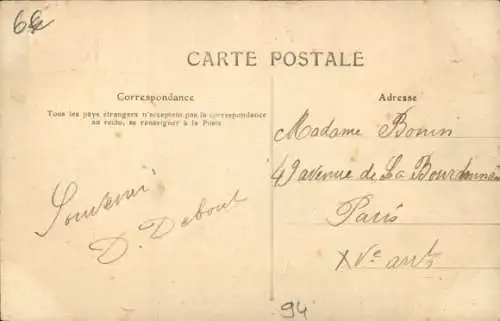 CARTE POSTALE
Correspondance
Tous les pays étrangers n'acceptent pas la correspondance
au recto, se renseigner à la Poste
Souvenir
D. Debout
Adresse
Madame Bonin
49 avenue de La Bourdonnais
Paris
XVe arrt
94